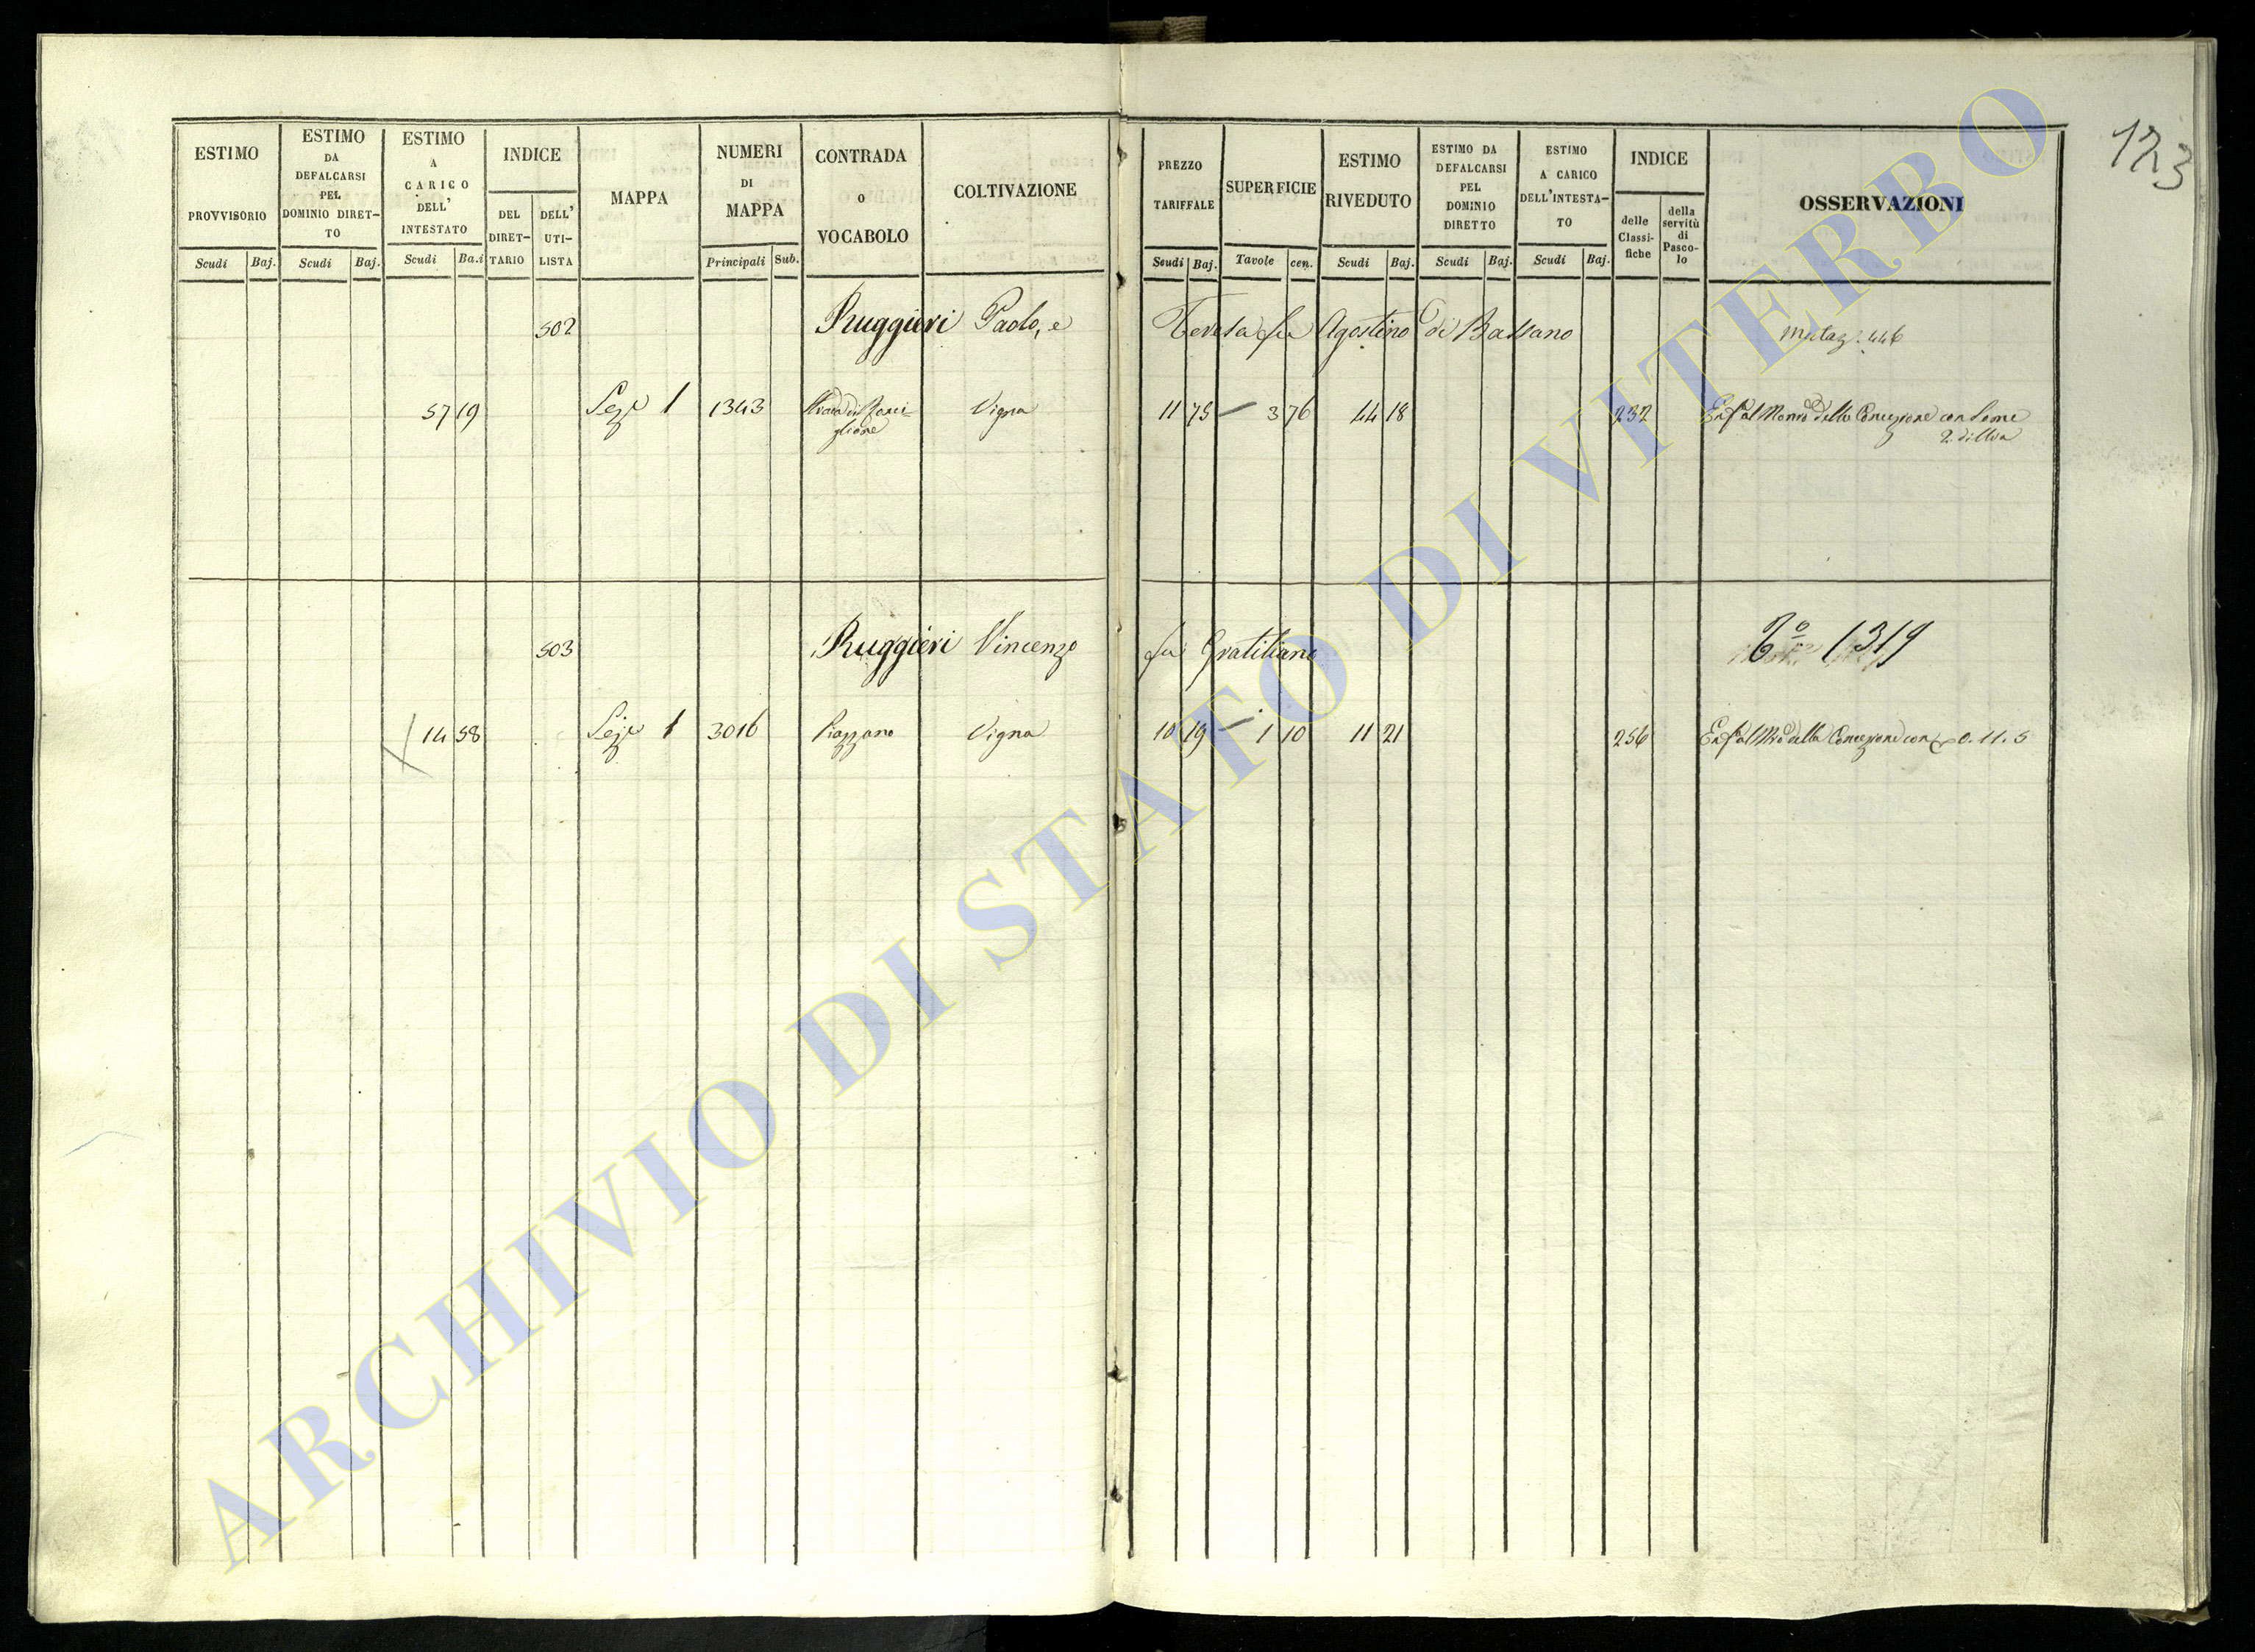 123
ESTIMO PROVVISORIO
ESTIMO DA DEFALCARSI PEL DOMINIO DIRETTO
ESTIMO A CARICO DELL' INTESTATO
INDICE
DEL DIRETTARIO
DELL' UTILISTA
MAPPA
NUMERI DI MAPPA
CONTRADA O VOCABOLO
COLTIVAZIONE
PREZZO TARIFFALE
SUPERFICIE
ESTIMO RIVEDUTO
ESTIMO DA DEFALCARSI PEL DOMINIO DIRETTO
ESTIMO A CARICO DELL'INTESTATO
INDICE
delle Classifiche
della servitù di Pascolo
OSSERVAZIONI
Scudi Baj. Scudi Baj. Scudi Ba.i Principali Sub. Scudi Baj. Tavole cen. Scudi Baj. Scudi Baj. Scudi Baj.
502 Ruggieri Paolo, e Teresa fu Agostino di Bassano Mutaz. 446
57 19 Sez.e 1 1343 Vigna 11 75 3 76 44 18 232 della Concezione con Some
2
503 Ruggieri Vincenzo fu Gratiliano 1319
14 58 Sez.e 1 3016 Piazzano Vigna 10 19 1 10 11 21 256 della Concezione con 0.11.5
ARCHIVIO DI STATO DI VITERBO